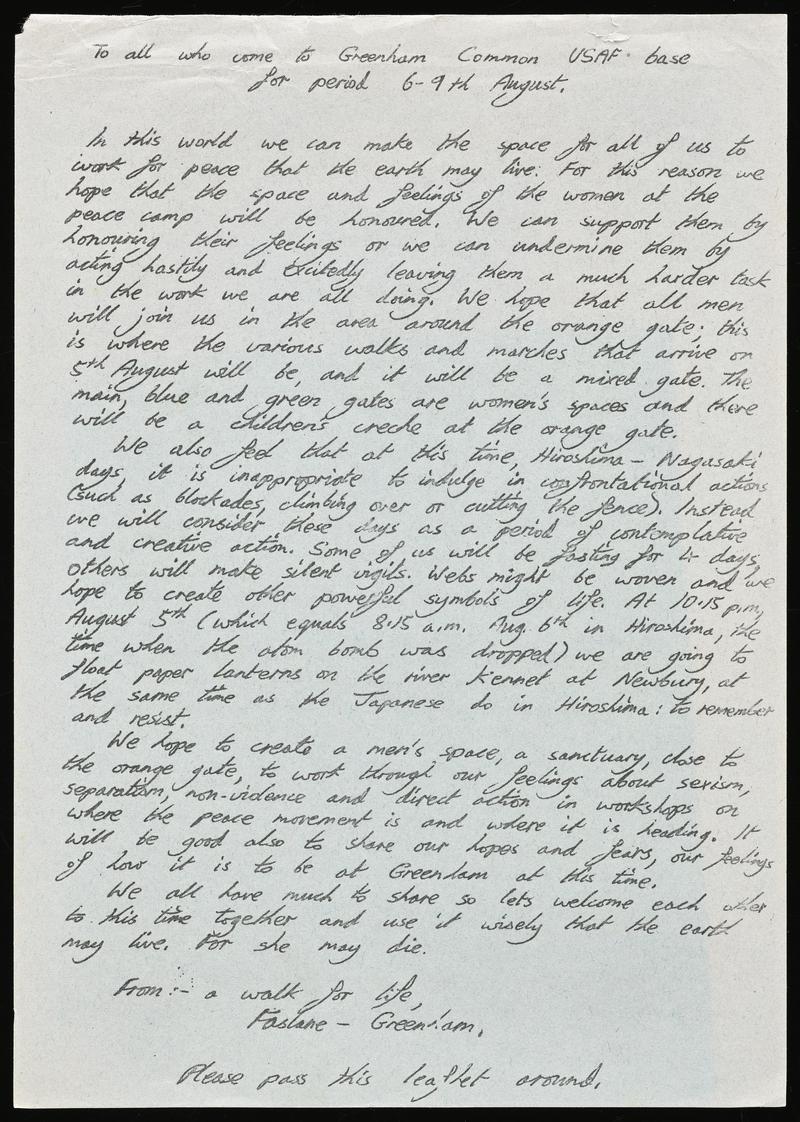 To all who come to Greenham Common USAF base
for period 6-9th August.
In this world we can make the space for all of us to
work for peace that the earth may live. For this reason we
hope that the space and feelings of the women at the
peace camp will be honoured. We can support them by
honouring their feelings or we can undermine them by
acting hastily and excitedly leaving them a much harder task
in the work we are all doing. We hope that all men
will join us in the area around the orange gate; this
is where the various walks and marches that arrive on
5th August will be, and it will be a mixed gate. The
main, blue and green gates are women's spaces and there
will be a children's creche at the orange gate.
We also feel that at this time, Hiroshima - Nagasaki
days, it is inappropriate to indulge in confrontational actions
(such as blockades, climbing over or cutting the fence). Instead
we will consider these days as a period of contemplative
and creative action. Some of us will be fasting for 4 days,
others will make silent vigils. Webs might be woven and we
hope to create other powerful symbols of life. At 10.15 p.m,
August 5th (which equals 8.15 a.m. Aug. 6th in Hiroshima, the
time when the atom bomb was dropped) we are going to
float paper lanterns on the river Kennet at Newbury, at
the same time as the Japanese do in Hiroshima: to remember
and resist.
We hope to create a men's space, a sanctuary, close to
the orange gate, to work through our feelings about sexism,
separatism, non-violence and direct action in workshops on
where the peace movement is and where it is heading. It
will be good also to share our hopes and fears, our feelings
of how it is to be at Greenham at this time.
We all have much to share so lets welcome each other
to this time together and use it wisely that the earth
may live. For she may die.
From:- a walk for life,
Faslane - Greenham.
Please pass this leaflet around.